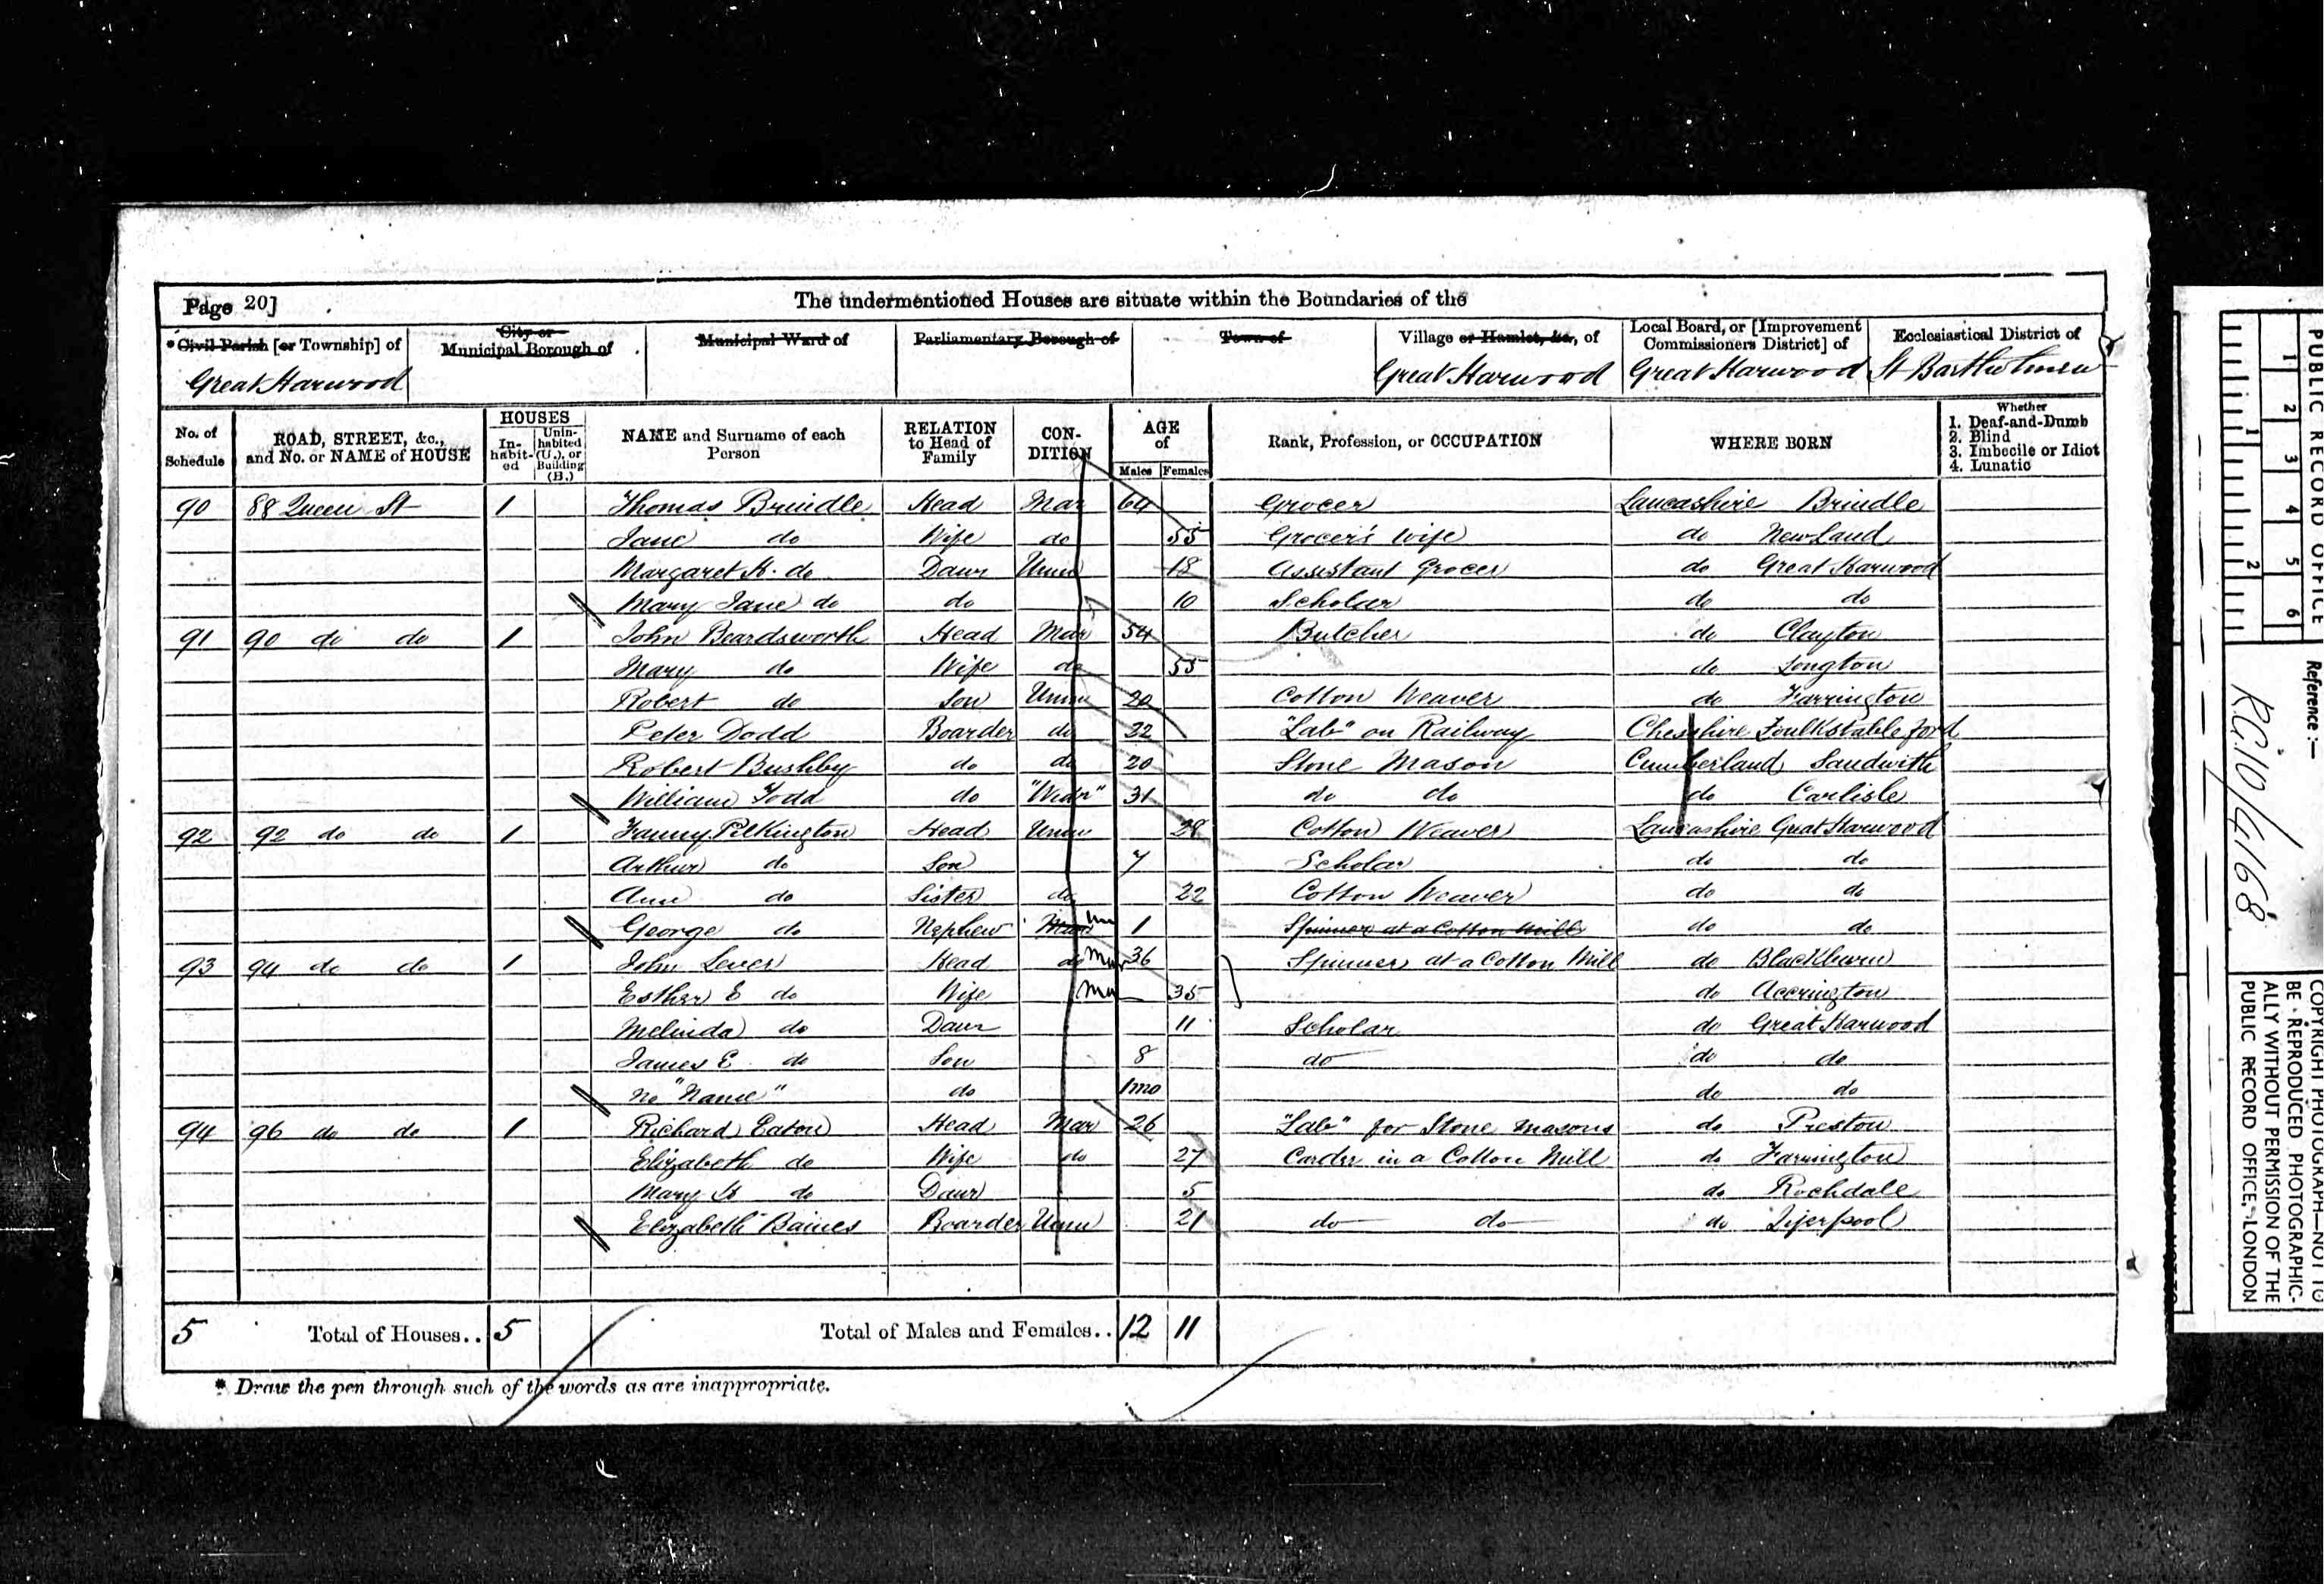 Page 20]
The undermentioned Houses are situate within the Boundaries of the
*Civil Parish [or Township] of
City or Municipal Borough of
Municipal Ward of
Parliamentary Borough of
Town of
Village or Hamlet, &c., of
Local Board, or [Improvement Commissioners District] of
Ecclesiastical District of
Great Harwood Great Harwood Great Harwood St Bartholomew
No. of Schedule
ROAD, STREET, &c., and No. or NAME of HOUSE
HOUSES
In-habit-ed
Unin-habited (U.), or Building (B.)
NAME and Surname of each Person
RELATION to Head of Family
CON-DITION
AGE of
Males Females
Rank, Profession, or OCCUPATION
WHERE BORN
Whether
1. Deaf-and-Dumb
2. Blind
3. Imbecile or Idiot
4. Lunatic
90 88 Queen St 1 Thomas Brindle Head Mar 64 Grocer Lancashire Brindle
Jane do Wife do 55 Grocer's Wife do Newland
Margaret H. do Daur Unm 18 Assistant Grocer do Great Harwood
Mary Jane do do 10 Scholar do do
91 90 do do 1 John Beardsworth Head Mar 54 Butcher do Clayton
Mary do Wife do 55 do Longton
Robert do Son Unm 20 Cotton Weaver do Farrington
Peter Dodd Boarder do 22 "Lab" on Railway Cheshire Foulkstableford
Robert Bushby do do 20 Stone Mason Cumberland Sandwith
William Todd do "Widr" 31 do do do Carlisle
92 92 do do 1 Fanny Pilkington Head Unm 28 Cotton Weaver Lancashire Great Harwood
Arthur do Son 7 Scholar do do
Ann do Sister do 22 Cotton Weaver do do
George do Nephew Un 1 Spinner at a Cotton Mill do do
93 94 do do 1 John Lever Head do Mar 36 Spinner at a Cotton Mill do Blackburn
Esther E do Wife Mar 35 do Accrington
Melinda do Daur 11 Scholar do Great Harwood
James E do Son 8 do do do
No "Name" do 1mo do do
94 96 do do 1 Richard Eaton Head Mar 26 "Lab" for Stone Masons do Preston
Elizabeth do Wife do 27 Carder in a Cotton Mill do Farrington
Mary do Daur 5 do Rochdale
Elizabeth Baines Boarder Unm 21 do do do Liverpool
5 Total of Houses.. 5 Total of Males and Females.. 12 11
* Draw the pen through such of the words as are inappropriate.
PUBLIC RECORD OFFICE
1 2 3 4 5 6
1 2
Reference:—
RG 10/4168
COPYRIGHT PHOTOGRAPH—NOT TO
BE REPRODUCED PHOTOGRAPHIC-
ALLY WITHOUT PERMISSION OF THE
PUBLIC RECORD OFFICE, LONDON